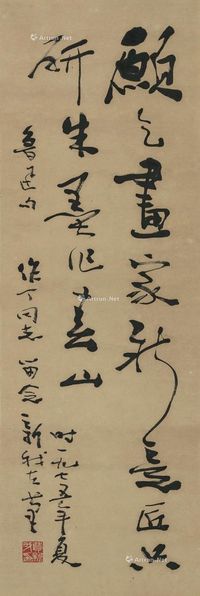 願乞畫家新意匠只
研朱墨作春山
时一九七五年夏
魯迅句
作丁同志留念新我左笔
Artron.Net